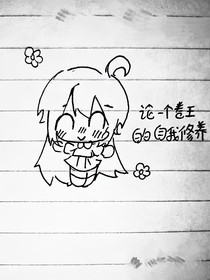 论一个卷王
的自我修养